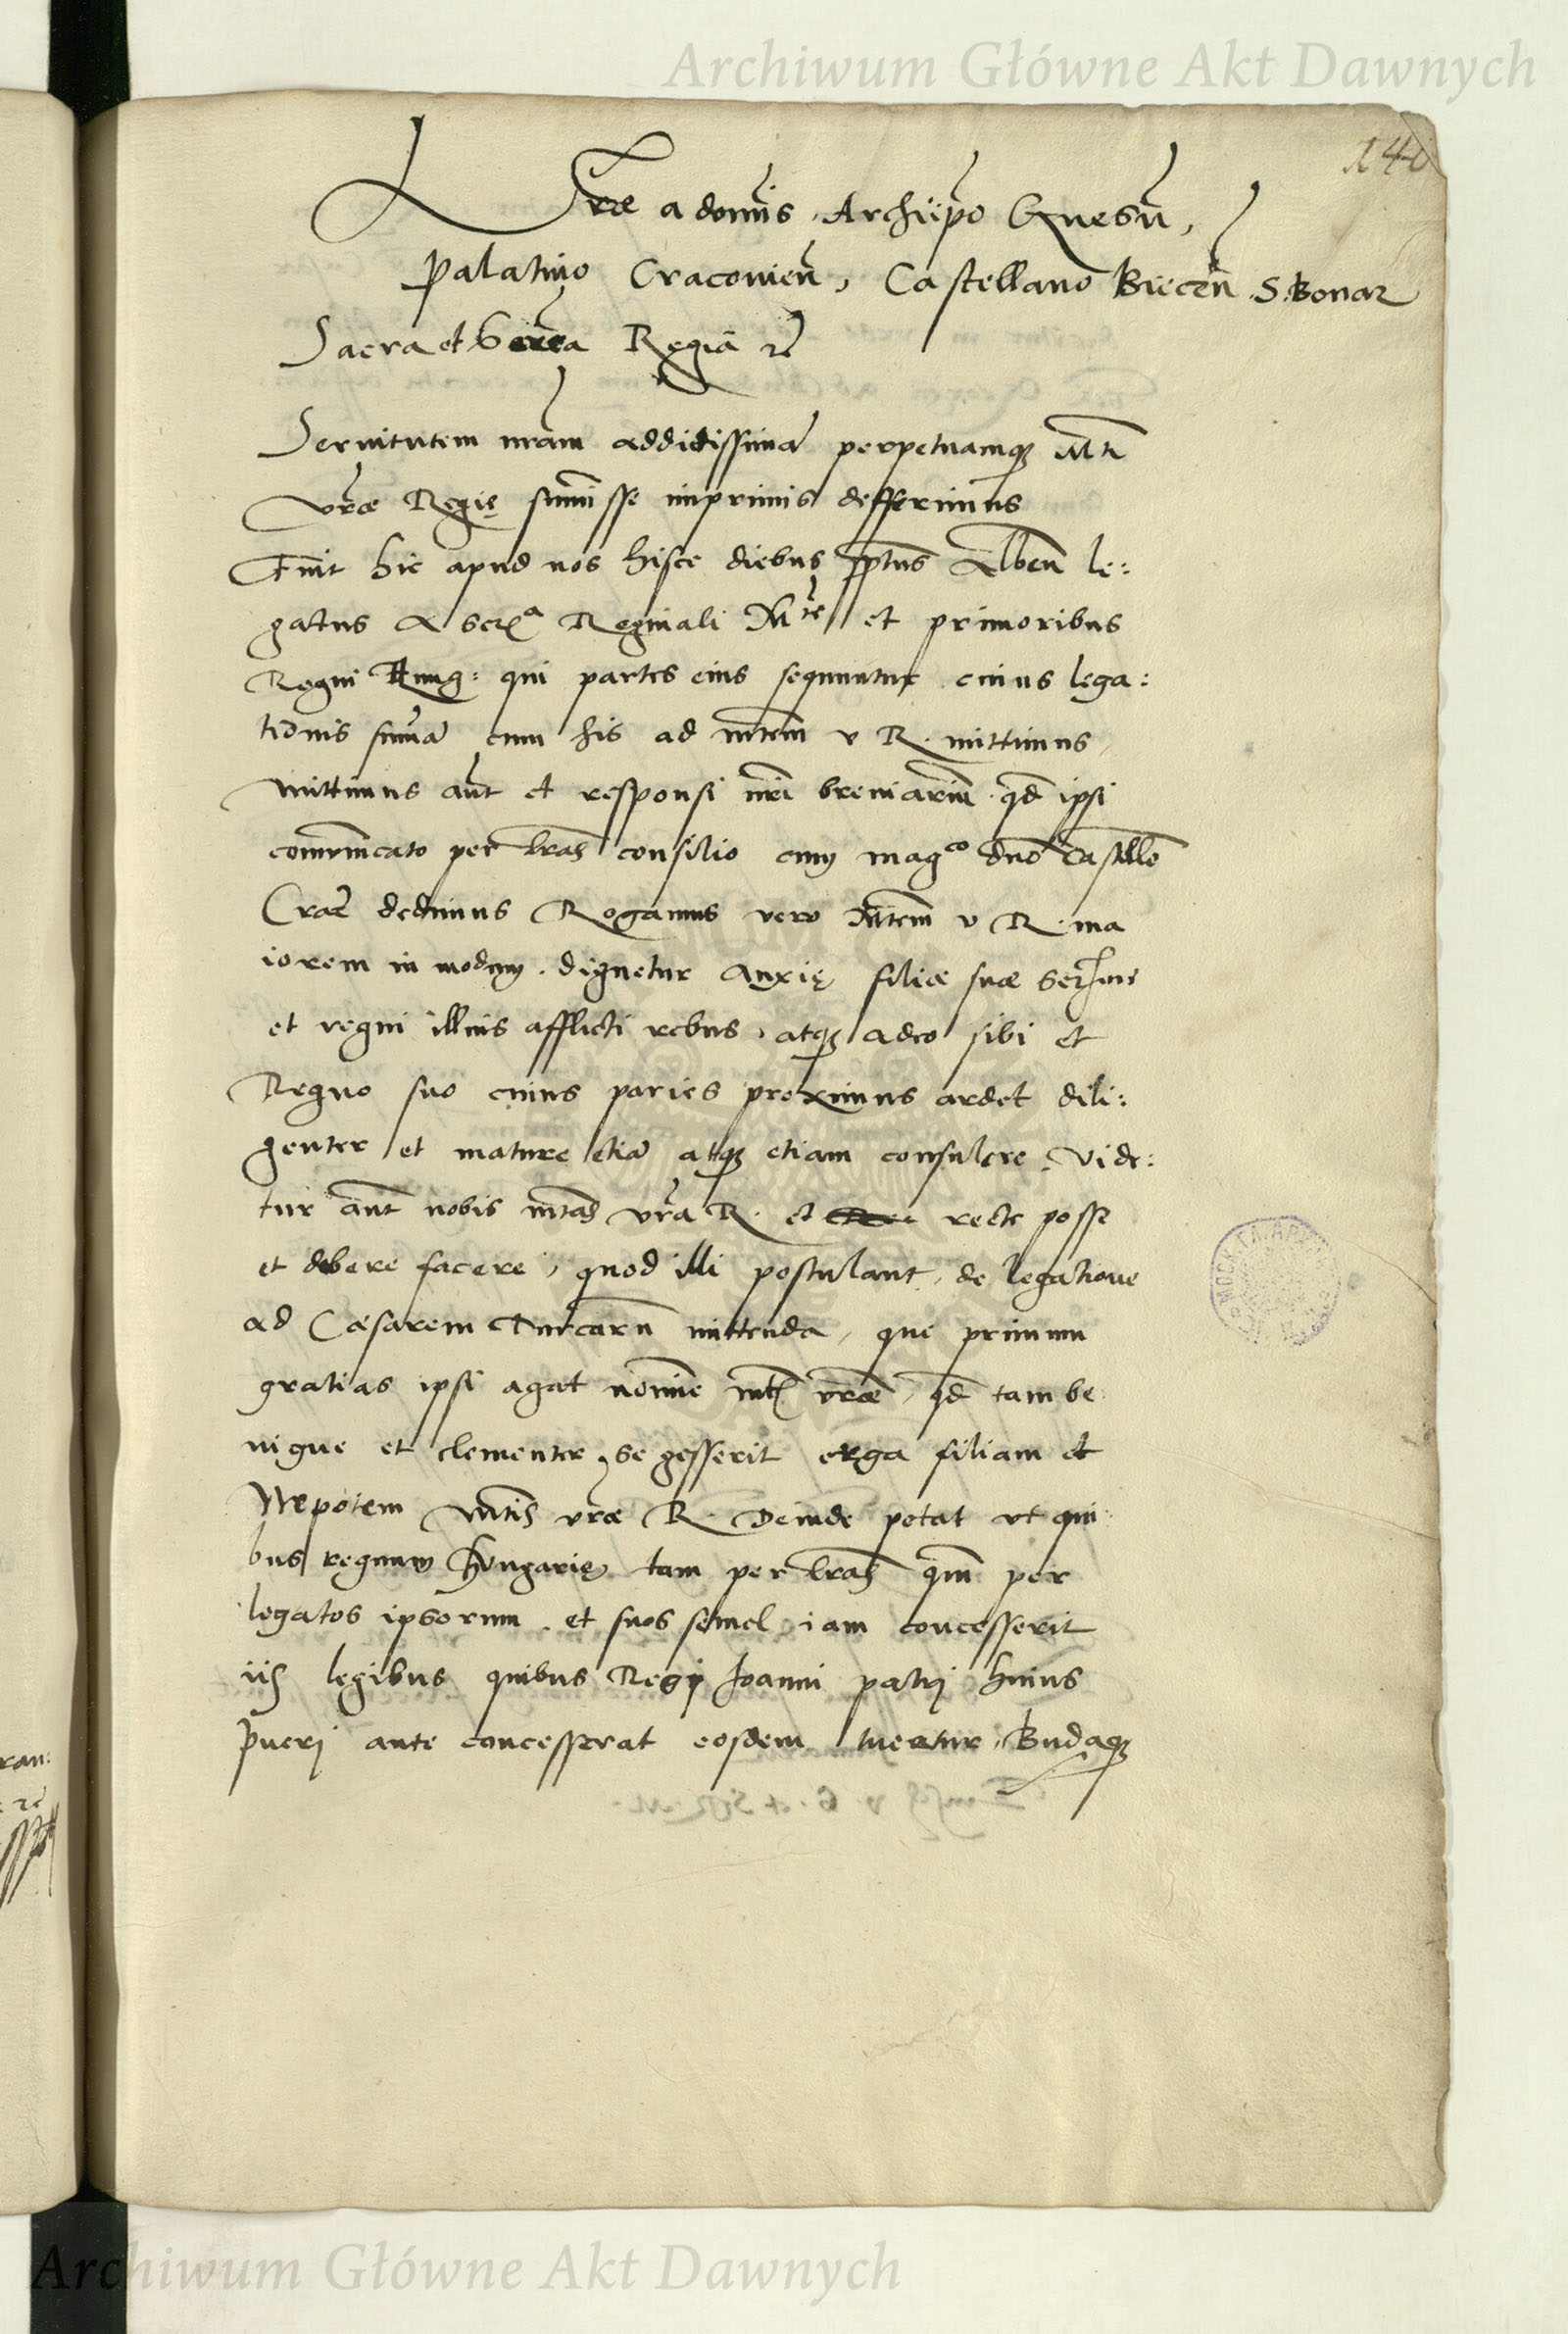 Archiwum Główne Akt Dawnych
Lrae a domis Archiepo Gnesn,
Palatino Cracovien, Castellano Biecen S. Bonar
Sacra et Serma Regia rc
Servitutem nram addictissima perpetuamq Mti
vrae Regię sumisse imprimis defferimus
Fuit hic apud nos hisce diebus le:
gatus a Serma Reginali Mte et primoribus
Regni Hung: qui partes eius sequuntur cuius lega:
tionis suma cum his ad mtem v R. mittimus,
mittimus aut et responsi nri breviarium qd ipsi
comunicato per lras consilio cum magco dno Castello
Crac dedimus Rogamus vero Mtem v R. ma
iorem in modum dignetur anxię filiae suae Sermę
et regni illius afflicti rebus, atq adeo sibi et
Regno suo cuius paries proximus ardet dili:
genter et mature etia atq etiam consulere. Vide:
tur aut nobis mtas vra R. et recte posse
et debere facere, quod illi postulant, de legatione
ad Caesarem Turcaru mittenda, que primum
gratias ipsi agat nomine mtis vrae, qd tam be
nigne et clementer se gesserit erga filiam et
Nepotem Mtis vrae R. Deinde petat ut qui
bus regnum Hungarię tam per lras qm per
legatos ipsorum et suos semel iam concesserit
iis legibus quibus Regi Joanni patri huius
pueri ante concesserat eosdem tueatur, Budaq
Archiwum Główne Akt Dawnych